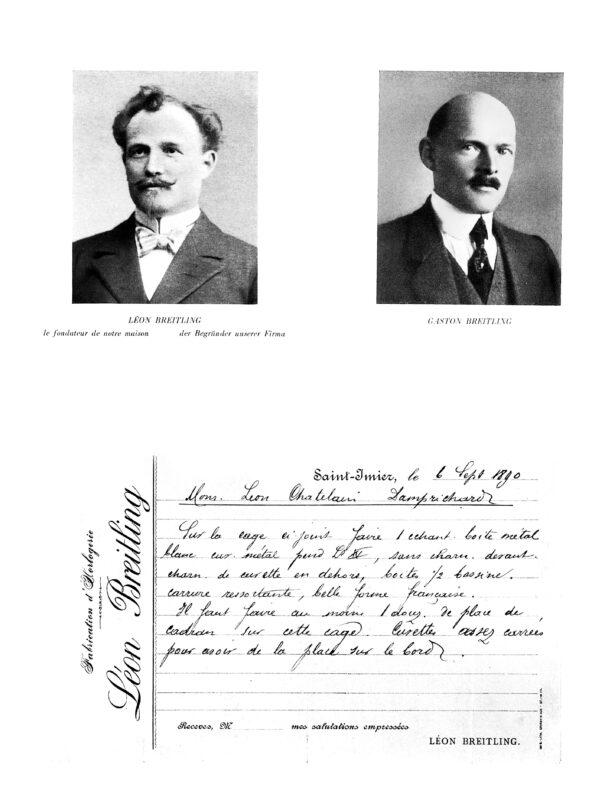 LÉON BREITLING
le fondateur de notre maison der Begründer unserer Firma
GASTON BREITLING
Fabrication d'Horlogerie
Léon Breitling
Saint-Imier, le 6 Sept 1890
Mons. Leon Chatelain Damprichard
Sur la cage ci joint faire 1 echant. boite métal
blanc cuv. métal pend , sans charn. devant
charn. de cuvette en dehors, boites 1/2 bassine.
carrure ressortante, belle forme française.
Il faut faire au moin 1 douz. de place de
cadran sur cette cage. Cuvettes assez carrées
pour avoir de la place sur le bord
Recevez, M mes salutations empressées
LÉON BREITLING.